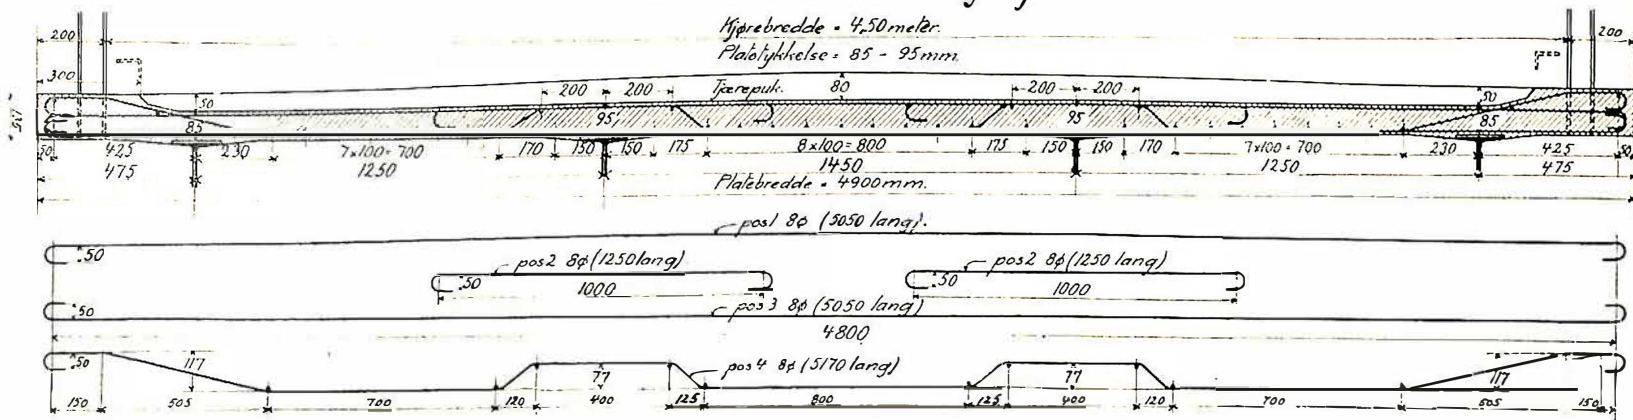 Kjørebredde = 4,50 meter.
Platetykkelse = 85 - 95 mm.
200 200
300 50 200 200 Tjærepuk. 80 200 200 50
85 95 95 85
50 425 230 7x100=700 170 150 150 175 8x100=800 175 150 150 170 7x100=700 230 425 50
475 1250 1450 1250 475
Platebredde = 4900 mm.
pos1 8ø (5050 lang).
50
pos2 8ø (1250 lang) pos2 8ø (1250 lang)
50 1000 50 1000
50 pos3 8ø (5050 lang)
4800
50 117 77 pos4 8ø (5170 lang) 77 117
150 505 700 120 400 125 800 125 400 120 700 505 150